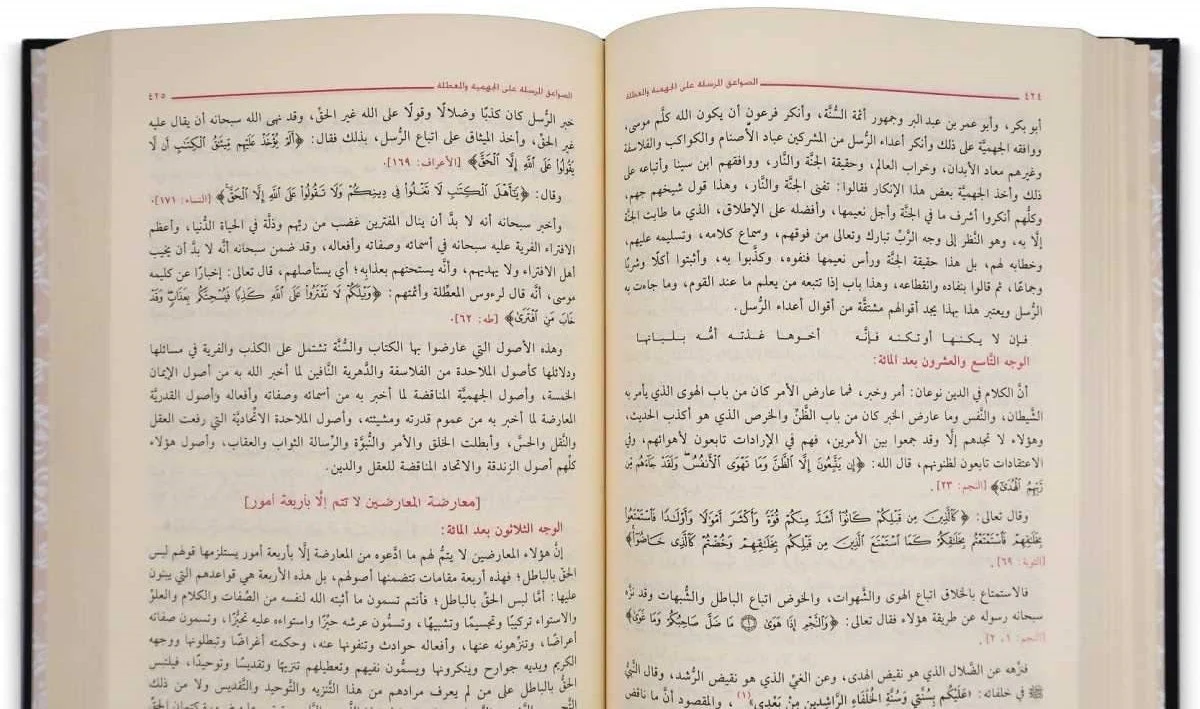 ٤٢٤ الصواعق المرسلة على الجهمية والمعطلة
أبو بكر، وأبو عمر بن عبد البر وجمهور أئمة السُّنَّة، وأنكر فرعون أن يكون الله كلَّم موسى،
ووافقه الجهميَّة على ذلك وأنكر أعداء الرُّسل من المشركين عباد الأصنام والكواكب والفلاسفة
وغيرهم معاد الأبدان، وخراب العالم، وحقيقة الجنَّة والنَّار، ووافقهم ابن سينا وأتباعه على
ذلك وأخذ الجهميَّة بعض هذا الإنكار فقالوا: تفنى الجنَّة والنَّار، وهذا قول شيخهم جهم،
وكلُّهم أنكروا أشرف ما في الجنَّة وأجل نعيمها، وأفضله على الإطلاق، الذي ما طابت الجنَّة
إلَّا به، وهو النَّظر إلى وجه الرَّبِّ تبارك وتعالى من فوقهم، وسماع كلامه، وتسليمه عليهم،
وخطابه لهم، بل هذا حقيقة الجنَّة ورأس نعيمها فنفوه، وكذَّبوا به، وأثبتوا أكلًا وشربًا
وجماعًا، ثم قالوا بنفاده وانقطاعه، وهذا باب إذا تتبعه من يعلم ما عند القوم، وما جاءت به
الرُّسل ويعتبر هذا بهذا يجد أقوالهم مشتقَّة من أقوال أعداء الرُّسل.
فإن لا يكنها أو تكنه فإنَّه أخوها غذته أمُّه بلبانها
الوجه التَّاسع والعشرون بعد المائة:
أنَّ الكلام في الدين نوعان: أمر وخبر، فما عارض الأمر كان من باب الهوى الذي يأمر به
الشَّيطان، والنَّفس وما عارض الخبر كان من باب الظَّنِّ والخرص الذي هو أكذب الحديث،
وهؤلاء لا تجدهم إلَّا وقد جمعوا بين الأمرين، فهم في الإرادات تابعون لأهوائهم، وفي
الاعتقادات تابعون لظنونهم، قال الله: ﴿إِن يَتَّبِعُونَ إِلَّا ٱلظَّنَّ وَمَا تَهْوَى ٱلْأَنفُسُ ۖ وَلَقَدْ جَآءَهُم مِّن
رَّبِّهِمُ ٱلْهُدَىٰٓ﴾ [النجم: ٢٣].
وقال تعالى: ﴿كَٱلَّذِينَ مِن قَبْلِكُمْ كَانُوٓا۟ أَشَدَّ مِنكُمْ قُوَّةً وَأَكْثَرَ أَمْوَٰلًا وَأَوْلَٰدًا فَٱسْتَمْتَعُوا۟
بِخَلَٰقِهِمْ فَٱسْتَمْتَعْتُم بِخَلَٰقِكُمْ كَمَا ٱسْتَمْتَعَ ٱلَّذِينَ مِن قَبْلِكُم بِخَلَٰقِهِمْ وَخُضْتُمْ كَٱلَّذِى خَاضُوٓا۟﴾
[التوبة: ٦٩].
فالاستمتاع بالخلاق اتباع الهوى والشَّهوات، والخوض اتباع الباطل والشُّبهات وقد نزَّه
سبحانه رسوله عن طريقة هؤلاء فقال تعالى: ﴿وَٱلنَّجْمِ إِذَا هَوَىٰ ۝١ مَا ضَلَّ صَاحِبُكُمْ وَمَا غَوَىٰ﴾
[النجم: ١، ٢].
فنزهه عن الضَّلال الذي هو نقيض الهدى، وعن الغيِّ الذي هو نقيض الرُّشد، وقال النَّبيُّ
ﷺ في خلفائه: «عَلَيْكُم بِسُنَّتِي وَسُنَّةِ الْخُلَفَاءِ الرَّاشِدِينَ مِنْ بَعْدِي»(١)، والمقصود أنَّ ما ناقض
الصواعق المرسلة على الجهمية والمعطلة ٤٢٥
خبر الرُّسل كان كذبًا وضلالًا وقولًا على الله غير الحقِّ، وقد نهى الله سبحانه أن يقال عليه
غير الحقِّ، وأخذ الميثاق على اتباع الرُّسل، بذلك فقال: ﴿أَلَمْ يُؤْخَذْ عَلَيْهِم مِّيثَٰقُ ٱلْكِتَٰبِ أَن لَّا
يَقُولُوا۟ عَلَى ٱللَّهِ إِلَّا ٱلْحَقَّ﴾ [الأعراف: ١٦٩].
وقال: ﴿يَٰٓأَهْلَ ٱلْكِتَٰبِ لَا تَغْلُوا۟ فِى دِينِكُمْ وَلَا تَقُولُوا۟ عَلَى ٱللَّهِ إِلَّا ٱلْحَقَّ﴾ [النساء: ١٧١].
وأخبر سبحانه أنه لا بدَّ أن ينال المفترين غضب من ربِّهم وذلَّة في الحياة الدُّنيا، وأعظم
الافتراء الفرية عليه سبحانه في أسمائه وصفاته وأفعاله، وقد ضمن سبحانه أنَّه لا بدَّ أن يخيب
أهل الافتراء ولا يهديهم، وأنَّه يستحتهم بعذابه؛ أي يستأصلهم، قال تعالى: إخبارًا عن كليمه
موسى، أنَّه قال لرءوس المعطِّلة وأئمتهم: ﴿وَيْلَكُمْ لَا تَفْتَرُوا۟ عَلَى ٱللَّهِ كَذِبًا فَيُسْحِتَكُم بِعَذَابٍ ۖ وَقَدْ
خَابَ مَنِ ٱفْتَرَىٰ﴾ [طه: ٦٢].
وهذه الأصول التي عارضوا بها الكتاب والسُّنَّة تشتمل على الكذب والفرية في مسائلها
ودلائلها كأصول الملاحدة من الفلاسفة والدَّهرية النَّافين لما أخبر الله به من أصول الإيمان
الخمسة، وأصول الجهميَّة المناقضة لما أخبر به من أسمائه وصفاته وأفعاله وأصول القدريَّة
المعارضة لما أخبر به من عموم قدرته ومشيئته، وأصول الملاحدة الاتِّحاديَّة التي رفعت العقل
والنَّقل والحسَّ، وأبطلت الخلق والأمر والنُّبوَّة والرِّسالة الثواب والعقاب، وأصول هؤلاء
كلُّهم أصول الزندقة والاتحاد المناقضة للعقل والدين.
[معارضة المعارضين لا تتم إلَّا بأربعة أمور]
الوجه الثلاثون بعد المائة:
إنَّ هؤلاء المعارضين لا يتمُّ لهم ما ادَّعوه من المعارضة إلَّا بأربعة أمور يستلزمها قولهم لبس
الحقِّ بالباطل؛ فهذه أربعة مقامات تتضمنها أصولهم، بل هذه الأربعة هي قواعدهم التي يبنون
عليها: أمَّا لبس الحقِّ بالباطل؛ فأنتم تسمون ما أثبته الله لنفسه من الصِّفات والكلام والعلوِّ
والاستواء تركيبًا وتجسيمًا وتشبيهًا، وتسمُّون عرشه حيِّزًا واستواءه عليه تحيُّزًا، وتسمون صفاته
أعراضًا، وتنزِّهونه عنها، وأفعاله حوادث وتنفونها عنه، وحكمته أغراضًا وتبطلونها ووجهه
الكريم ويديه جوارح وينكرونها ويسمُّون نفيهم وتعطيلهم تنزيهًا وتقديسًا وتوحيدًا، فيلبس
الحقُّ بالباطل على من لم يعرف مرادهم من هذا التَّنزيه والتَّوحيد والتَّقديس ولا من ذلك